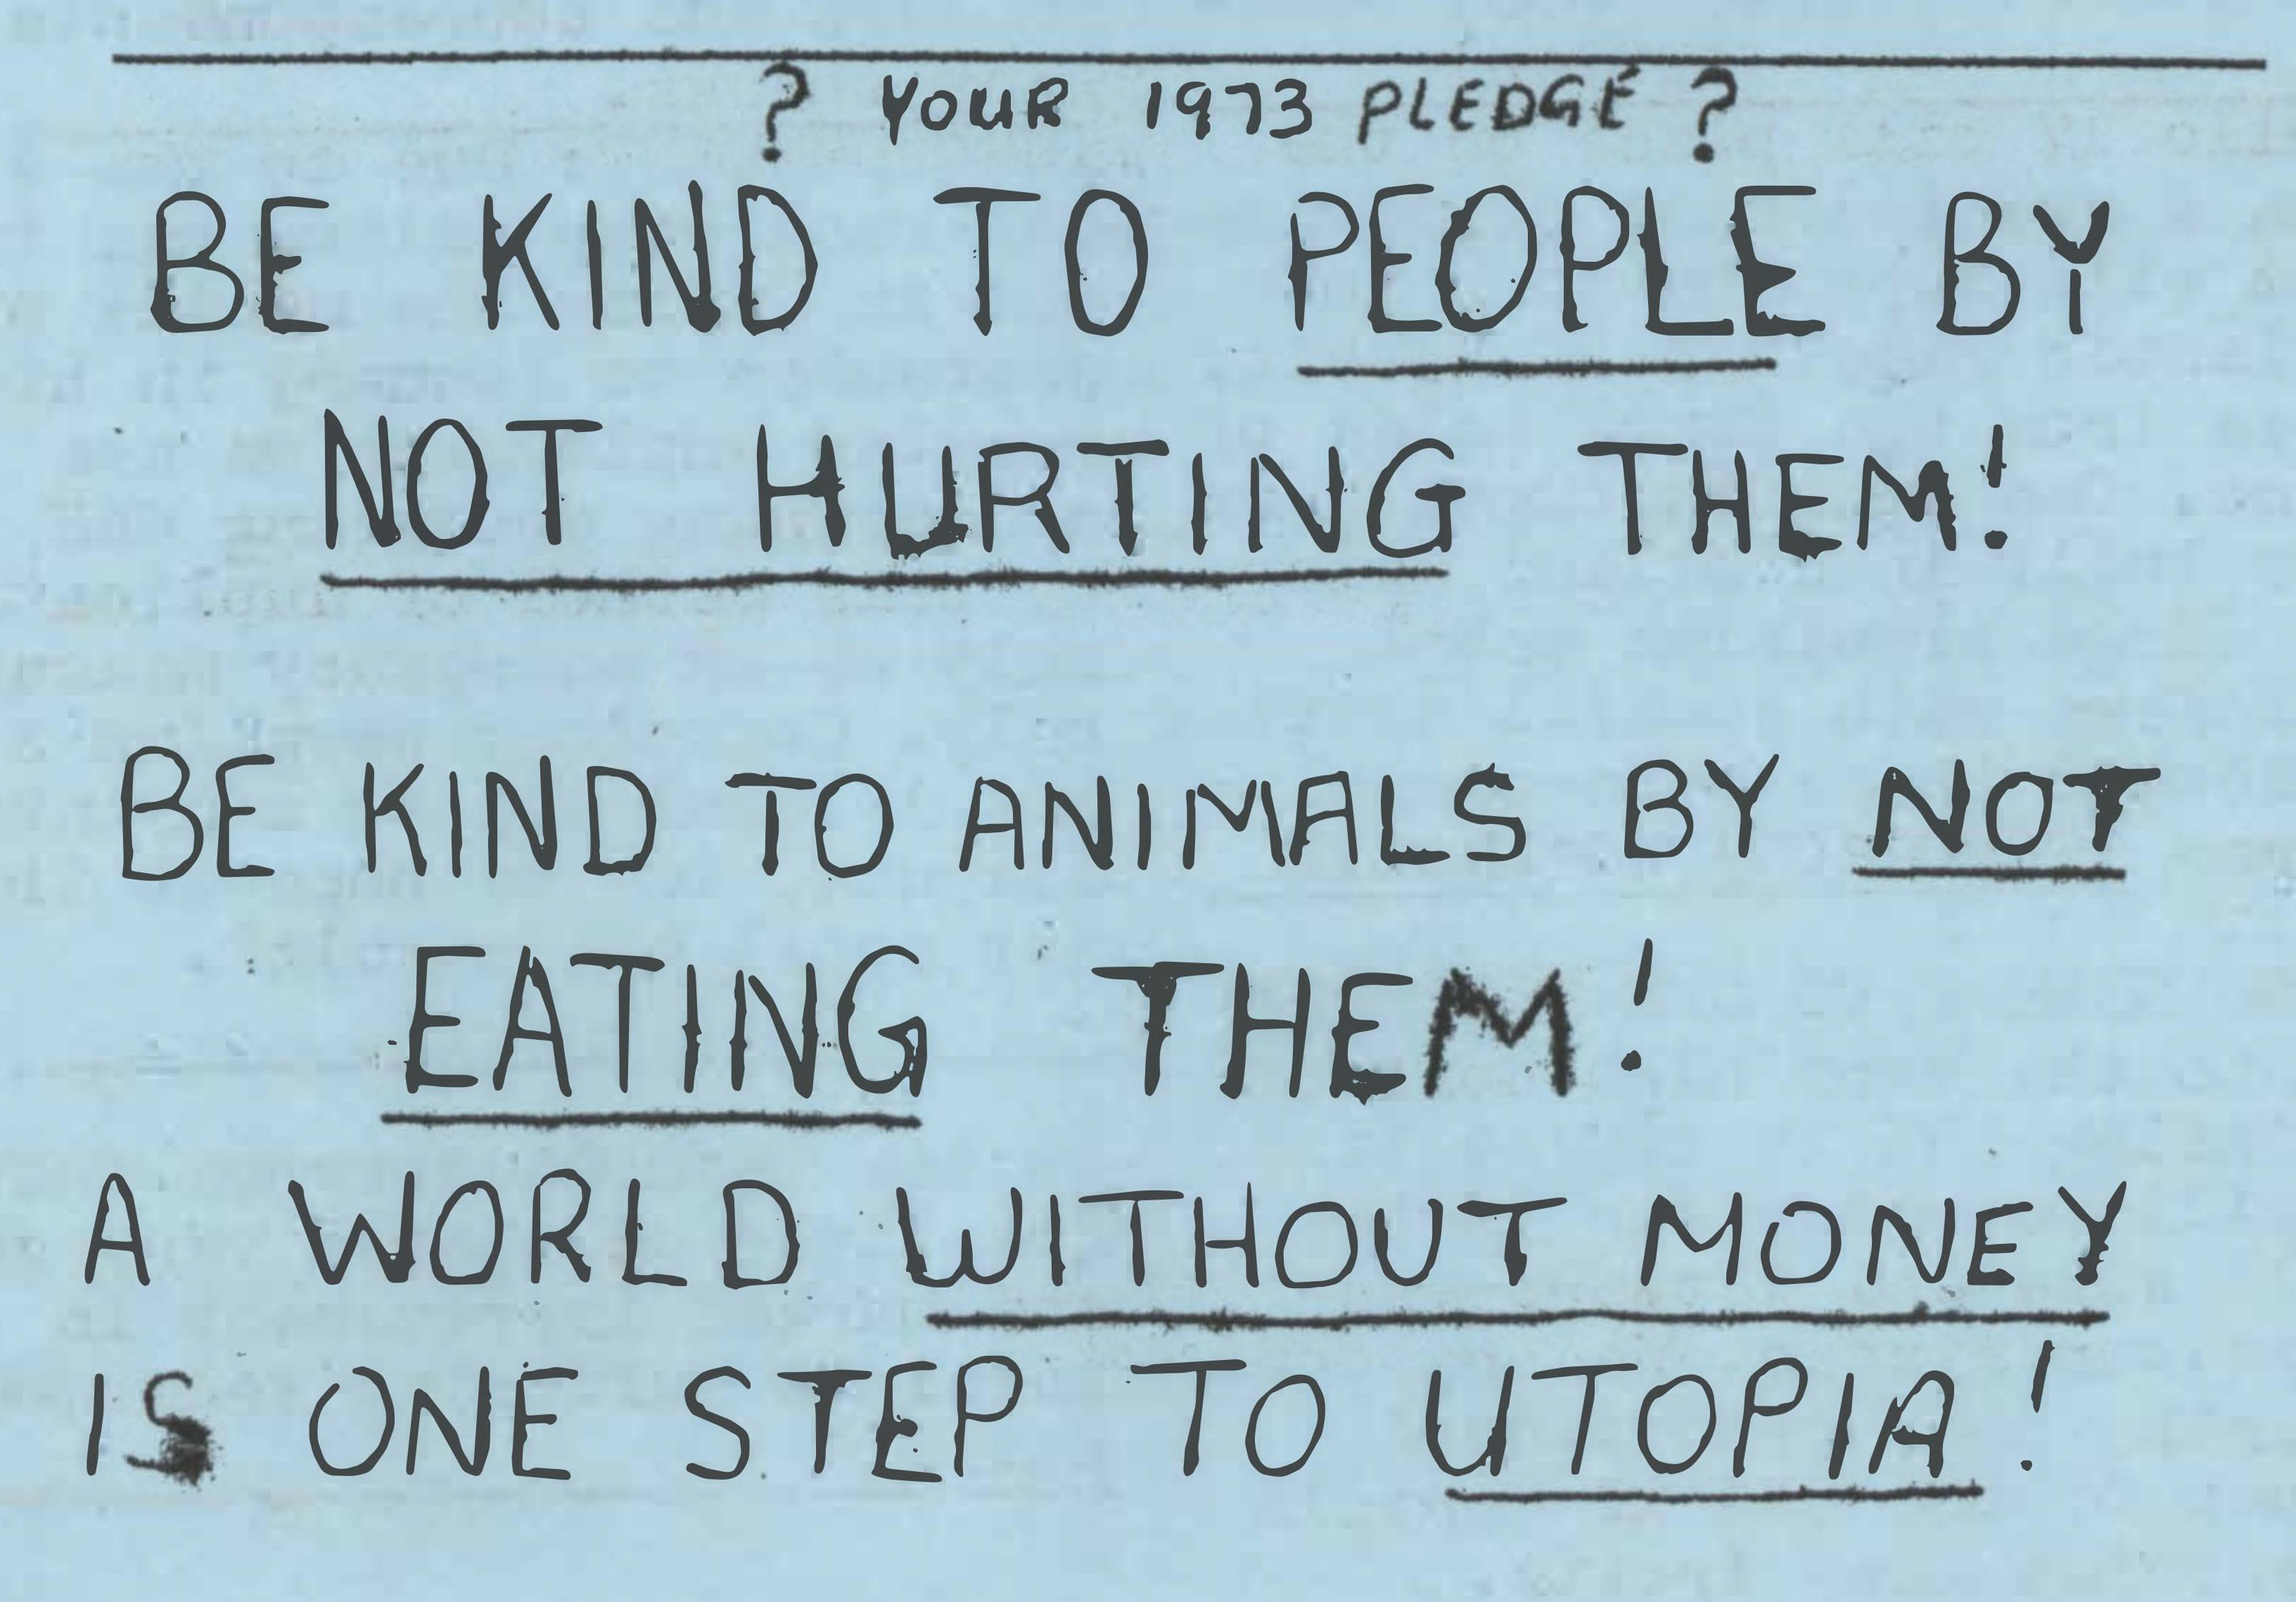 ? YOUR 1973 PLEDGE ?
BE KIND TO PEOPLE BY
NOT HURTING THEM!
BE KIND TO ANIMALS BY NOT
EATING THEM!
A WORLD WITHOUT MONEY
IS ONE STEP TO UTOPIA!